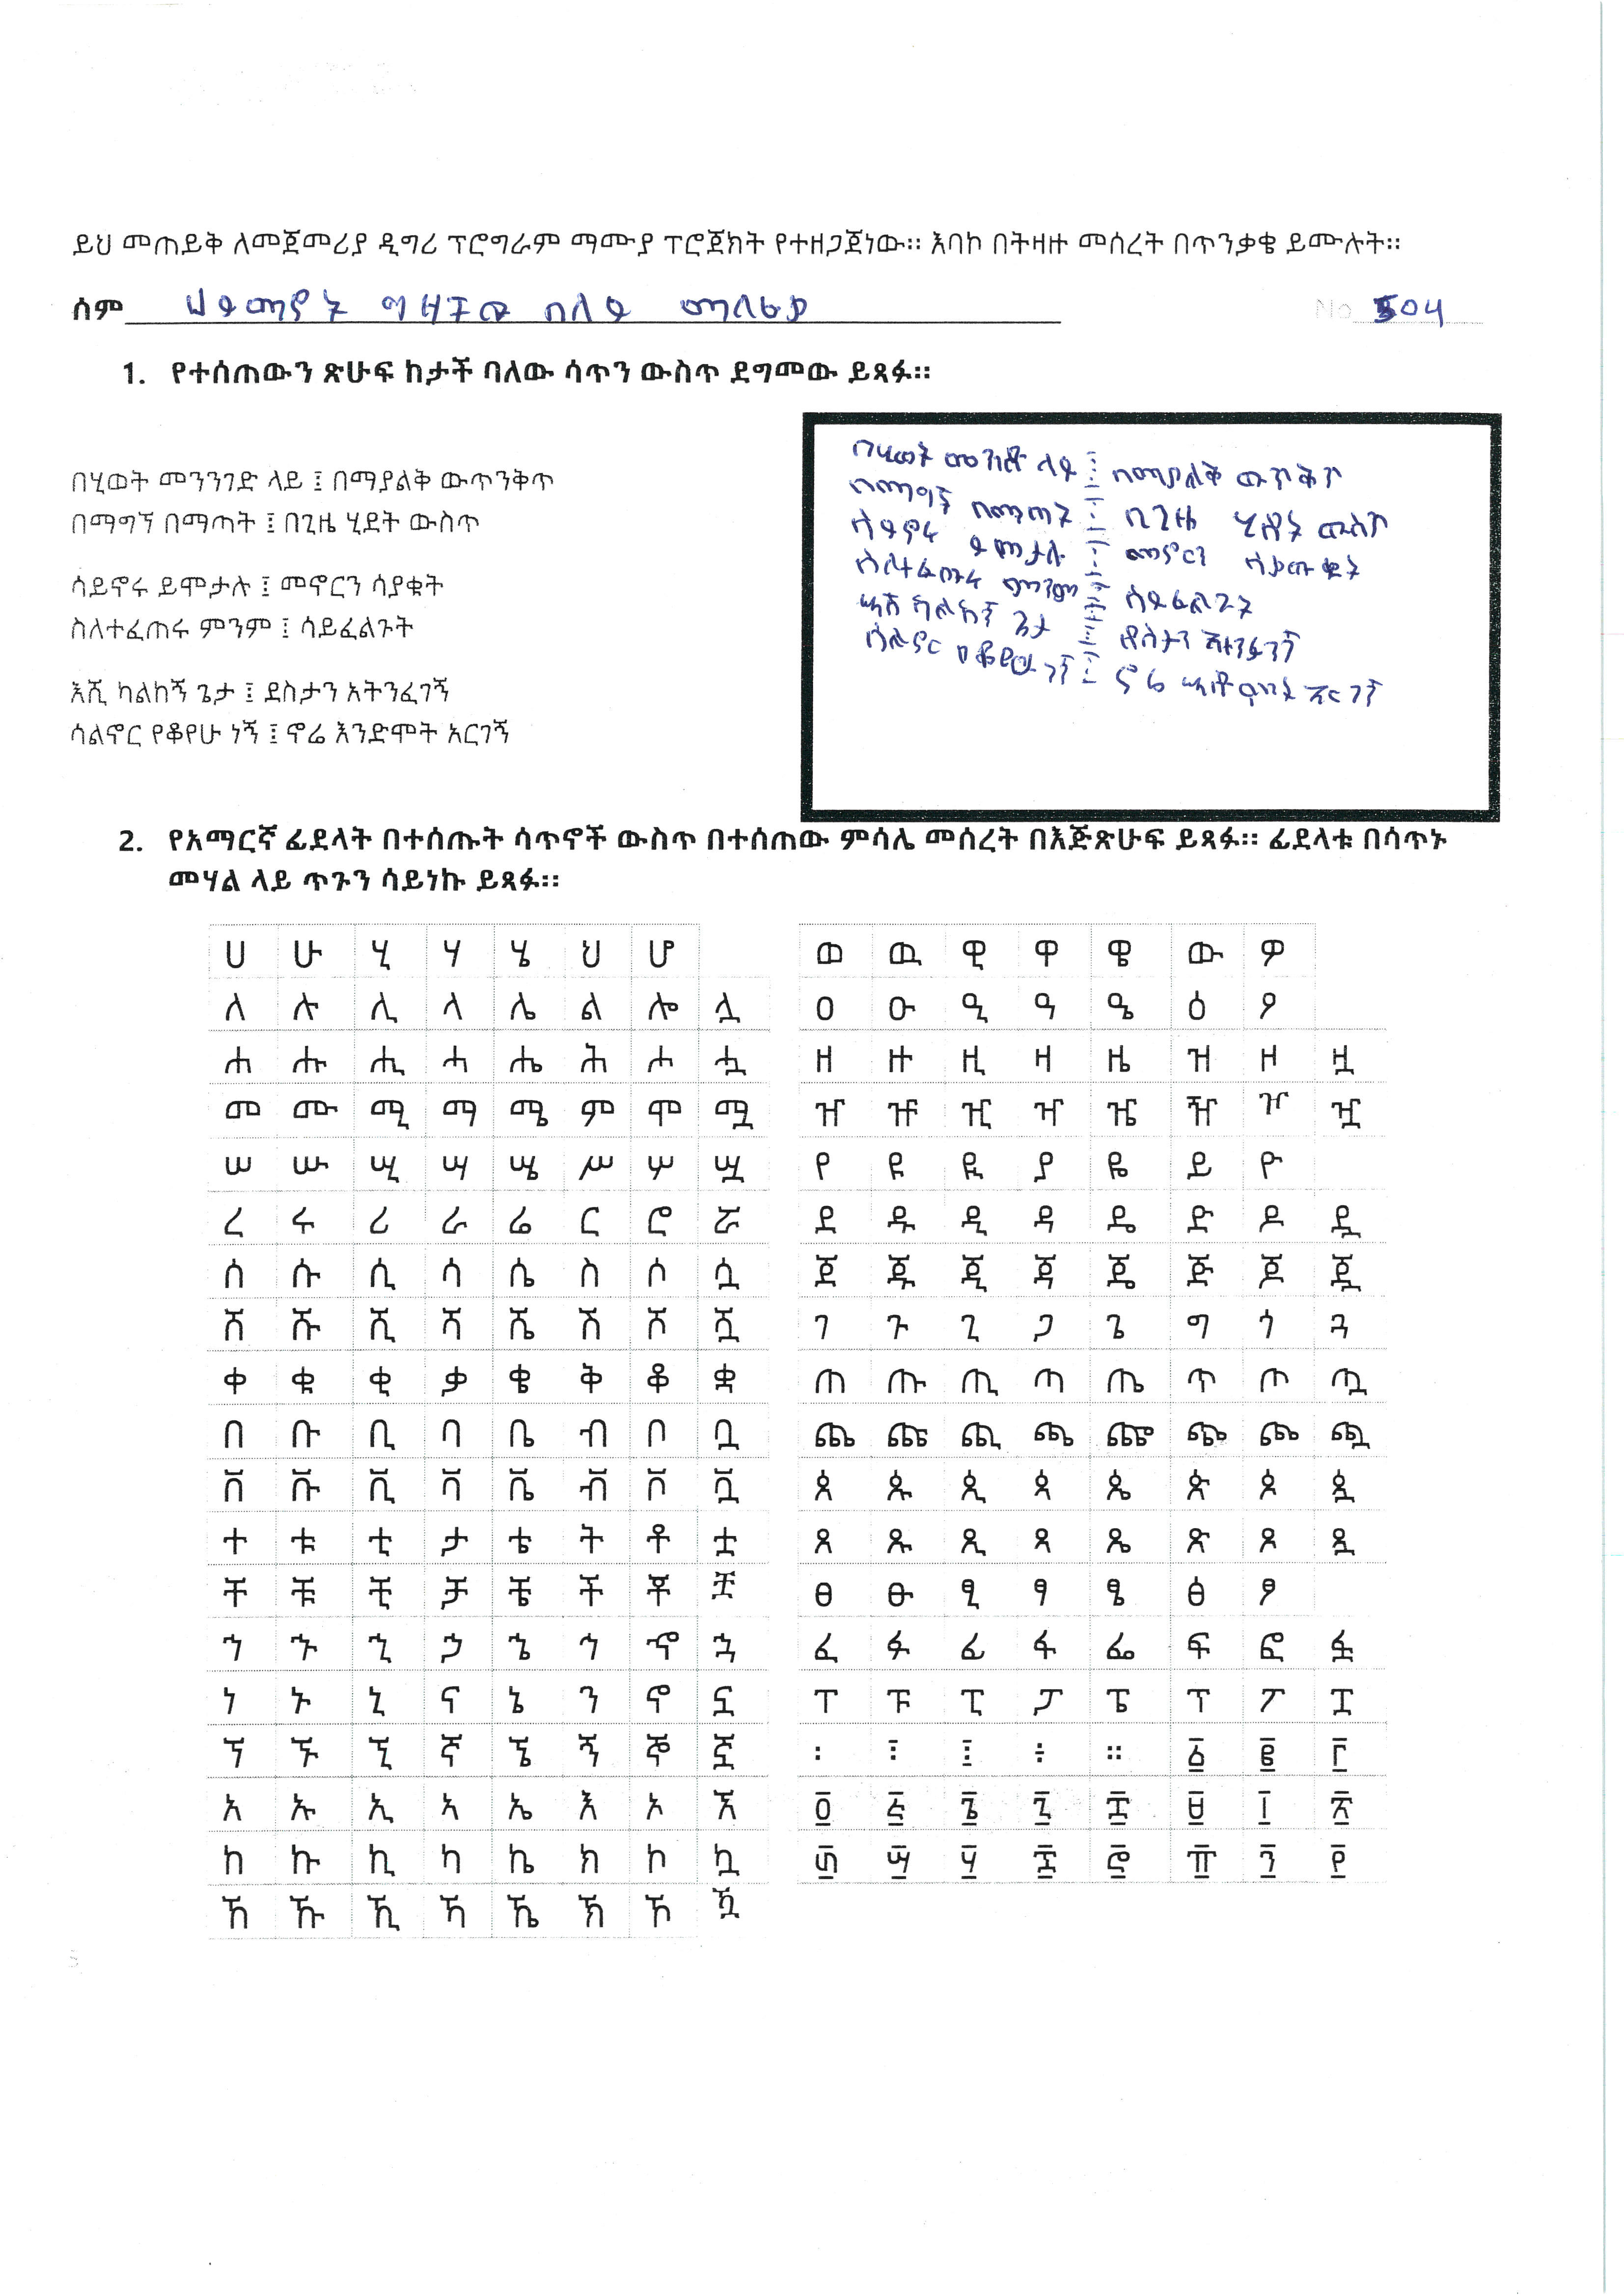 ይህ መጠይቅ ለመጀመሪያ ዲግሪ ፕሮግራም ማሙያ ፕሮጀክት የተዘጋጀነው። እባኮ በትዛዙ መሰረት በጥንቃቄ ይሙሉት።
ሰም ሀይማኖት ግዛቸው በለይ No 504
1. የተሰጠውን ጽሁፍ ከታች ባለው ሳጥን ውስጥ ደግመው ይጻፉ።
በሂወት መንንገድ ላይ ፤ በማያልቅ ውጥንቅጥ
በማግኘ በማጣት ፤ በጊዜ ሂደት ውስጥ
ሳይኖሩ ይሞታሉ ፤ መኖርን ሳያቁት
ስለተፈጠሩ ምንም ፤ ሳይፈልጉት
እሺ ካልከኝ ጌታ ፤ ደስታን አትንፈገኝ
ሳልኖር የቆየሁ ነኝ ፤ ኖሬ እንድሞት አርገኝ
በሂወት ላይ ፤ በማያልቅ
በማግኘ በማጣት ፤ በጊዜ ሂደት ውስጥ
ሳይኖሩ ይሞታሉ ፤ መኖርን
ስለተፈጠሩ ምንም ፤ ሳይፈልጉት
ጌታ ፤ ደስታን
ሳልኖር ነኝ ፤ ኖሬ አርገኝ
2. የአማርኛ ፊደላት በተሰጡት ሳጥኖች ውስጥ በተሰጠው ምሳሌ መሰረት በእጅጽሁፍ ይጻፉ። ፊደላቱ በሳጥኑ
መሃል ላይ ጥጉን ሳይነኩ ይጻፉ።
ሀ ሁ ሂ ሃ ሄ ህ ሆ
ለ ሉ ሊ ላ ሌ ል ሎ ሏ
ሐ ሑ ሒ ሓ ሔ ሕ ሖ ሗ
መ ሙ ሚ ማ ሜ ም ሞ ሟ
ሠ ሡ ሢ ሣ ሤ ሥ ሦ ሧ
ረ ሩ ሪ ራ ሬ ር ሮ ሯ
ሰ ሱ ሲ ሳ ሴ ስ ሶ ሷ
ሸ ሹ ሺ ሻ ሼ ሽ ሾ ሿ
ቀ ቁ ቂ ቃ ቄ ቅ ቆ ቋ
በ ቡ ቢ ባ ቤ ብ ቦ ቧ
ቨ ቩ ቪ ቫ ቬ ቭ ቮ ቯ
ተ ቱ ቲ ታ ቴ ት ቶ ቷ
ቸ ቹ ቺ ቻ ቼ ች ቾ ቿ
ኀ ኁ ኂ ኃ ኄ ኅ ኆ ኋ
ነ ኑ ኒ ና ኔ ን ኖ ኗ
ኘ ኙ ኚ ኛ ኜ ኝ ኞ ኟ
አ ኡ ኢ ኣ ኤ እ ኦ ኧ
ከ ኩ ኪ ካ ኬ ክ ኮ ኳ
ኸ ኹ ኺ ኻ ኼ ኽ ኾ ዃ
ወ ዉ ዊ ዋ ዌ ው ዎ
ዐ ዑ ዒ ዓ ዔ ዕ ዖ
ዘ ዙ ዚ ዛ ዜ ዝ ዞ ዟ
ዠ ዡ ዢ ዣ ዤ ዥ ዦ ዧ
የ ዩ ዪ ያ ዬ ይ ዮ
ደ ዱ ዲ ዳ ዴ ድ ዶ ዷ
ጀ ጁ ጂ ጃ ጄ ጅ ጆ ጇ
ገ ጉ ጊ ጋ ጌ ግ ጎ ጓ
ጠ ጡ ጢ ጣ ጤ ጥ ጦ ጧ
ጨ ጩ ጪ ጫ ጬ ጭ ጮ ጯ
ጰ ጱ ጲ ጳ ጴ ጵ ጶ ጷ
ጸ ጹ ጺ ጻ ጼ ጽ ጾ ጿ
ፀ ፁ ፂ ፃ ፄ ፅ ፆ
ፈ ፉ ፊ ፋ ፌ ፍ ፎ ፏ
ፐ ፑ ፒ ፓ ፔ ፕ ፖ ፗ
፡ ፣ ፤ ፥ ። ፩ ፪ ፫
፬ ፭ ፮ ፯ ፰ ፱ ፲ ፳
፴ ፵ ፶ ፷ ፸ ፹ ፺ ፻